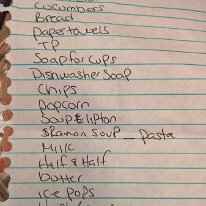 Cucumbers
Bread
Papertowels
TP
Soap for Cups
Dishwasher Soap
Chips
Popcorn
Soup & lipton
& Ramon Soup - pasta
Milk
Half & Half
butter
ice pops